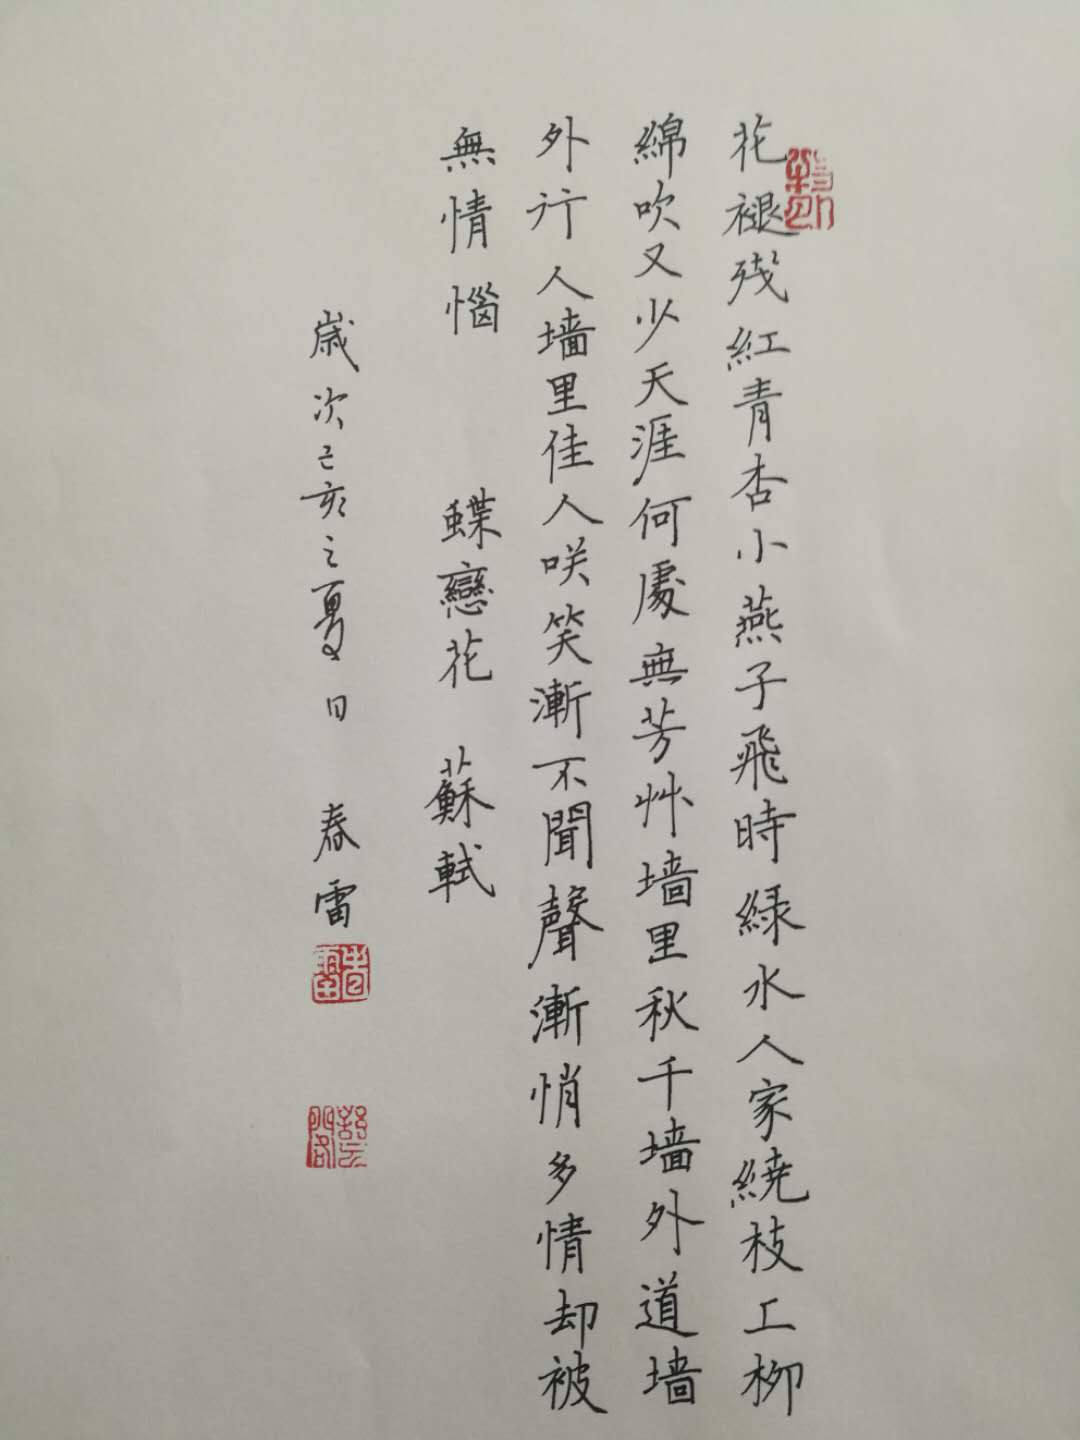 花褪残紅青杏小燕子飛時緑水人家繞枝上柳
綿吹又少天涯何處無芳艸墙里秋千墙外道墙
外行人墙里佳人咲笑漸不聞聲漸悄多情却被
無情惱 蝶戀花 蘇軾
歲次己亥之夏日 春雷
春雷